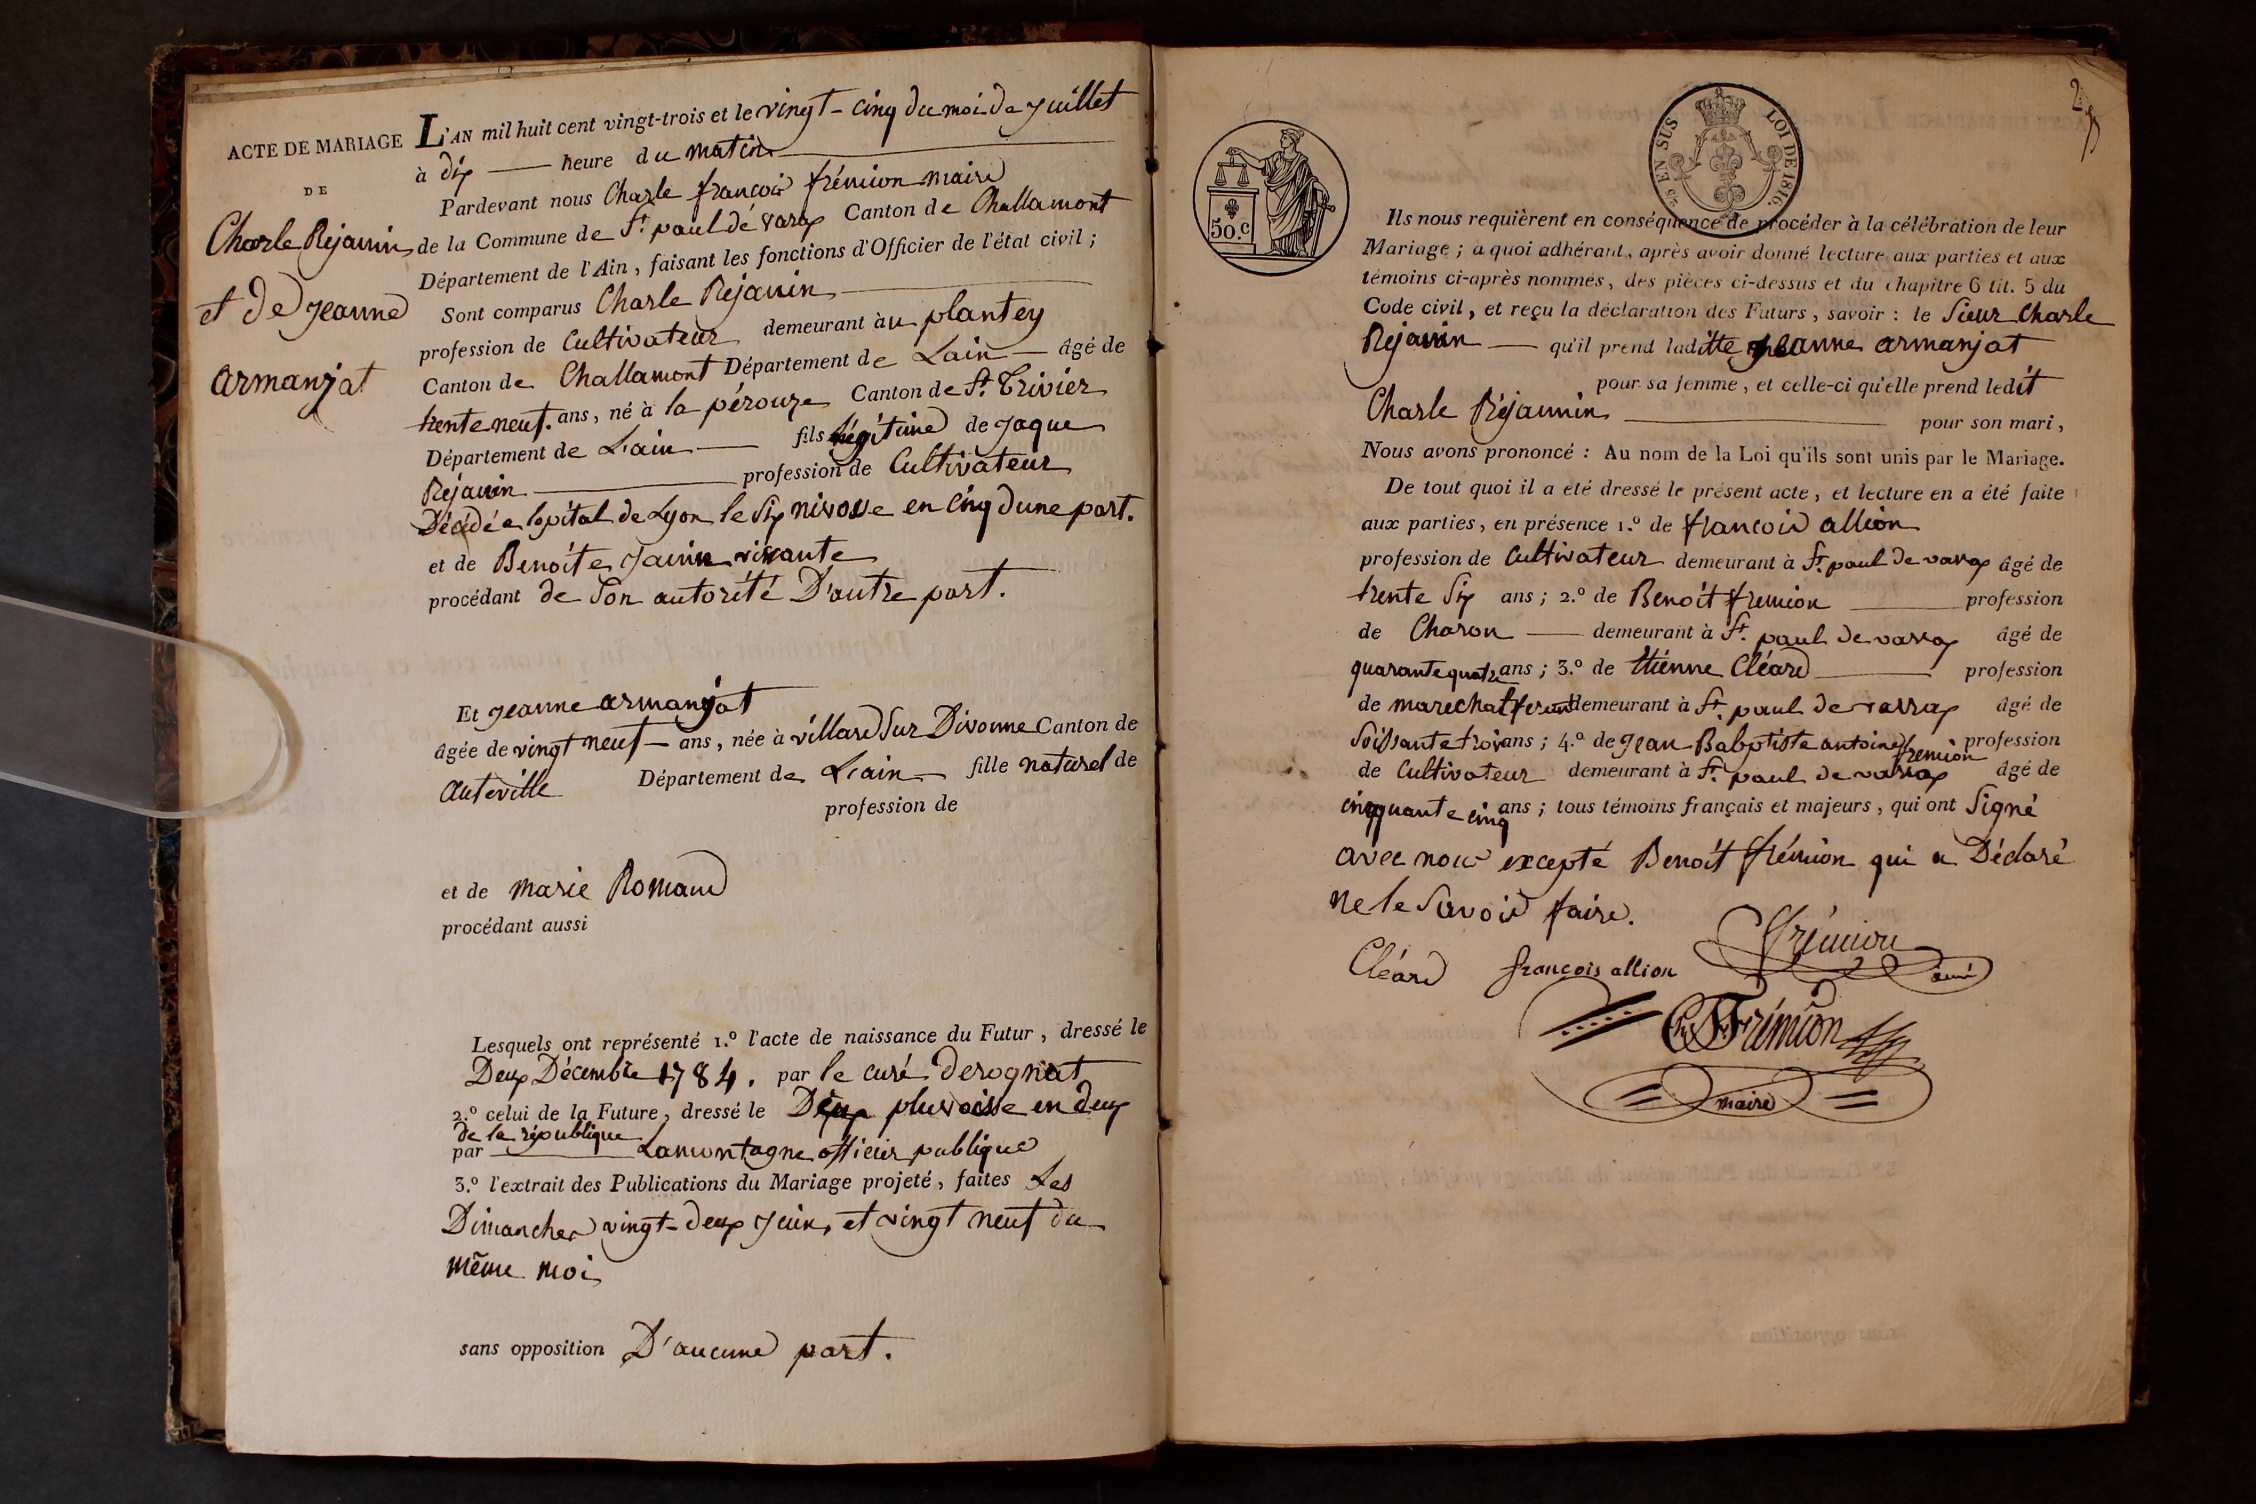 ACTE DE MARIAGE
DE
Charle Réjanin
et de Jeanne
armanjat
L'AN mil huit cent vingt-trois et le vingt-cinq du moi de Juillet
à dix heure du matin
Pardevant nous Charle françois frémion maire
de la Commune de St. paul dé varax Canton de Challamont
Département de l'Ain, faisant les fonctions d'Officier de l'état civil ;
Sont comparus Charle Réjanin
profession de Cultivateur demeurant àu plantey
Canton de Challamont Département de Lain âgé de
trente neuf. ans, né à la pérouze Canton de St. Trivier
Département de L'ain fils légitime de Jaque
Réjanin profession de Cultivateur
Décédé a lopital de Lyon le six nivosse en cinq dune part.
et de Benoite Janin vivante
procédant de Son autorité D'autre part.
Et Jeanne armanjat
âgée de vingt neuf ans, née à villard Sur Divonne Canton de
auteville Département de L'ain fille naturel de
profession de
et de marie Romand
procédant aussi
Lesquels ont représenté 1.º l'acte de naissance du Futur, dressé le
Deux Décembre 1784. par le curé derognat
2.º celui de la Future, dressé le Deux pluvoisse en deux
de la république
par Lamontagne officier publique
3.º l'extrait des Publications du Mariage projeté, faites Les
Dimanches vingt-deux Juin, et vingt neuf du
même moi
sans opposition D'aucune part.
50.c
EN SUS LOI DE 1816.
Ils nous requièrent en conséquence de procéder à la célébration de leur
Mariage ; a quoi adhérant, après avoir donné lecture aux parties et aux
témoins ci-après nommés, des pièces ci-dessus et du chapitre 6 tit. 5 du
Code civil, et reçu la déclaration des Futurs, savoir : le Sieur Charle
Réjanin qu'il prend laditte jeanne armanjat
pour sa femme, et celle-ci qu'elle prend ledit
Charle Réjannin pour son mari,
Nous avons prononcé : Au nom de la Loi qu'ils sont unis par le Mariage.
De tout quoi il a été dressé le présent acte, et lecture en a été faite
aux parties, en présence 1.º de françois allion
profession de Cultivateur demeurant à St. paul de varax âgé de
trente Six ans ; 2.º de Benoît fremion profession
de Charon demeurant à St. paul de varax âgé de
quarante quatre ans ; 3.º de Etiénne Cléard profession
de marechal ferant demeurant à St. paul de varrax âgé de
Soissante trois ans ; 4.º de Jean Babptiste antoine fremion profession
de Cultivateur demeurant à St. paul de varax âgé de
cinqquante cinq ans ; tous témoins français et majeurs, qui ont Signé
avec nous excepté Benoît frémion qui a Déclaré
ne le Savoir faire.
Cléard françois allion frémion ainé
Ch. F. Frémion
maire